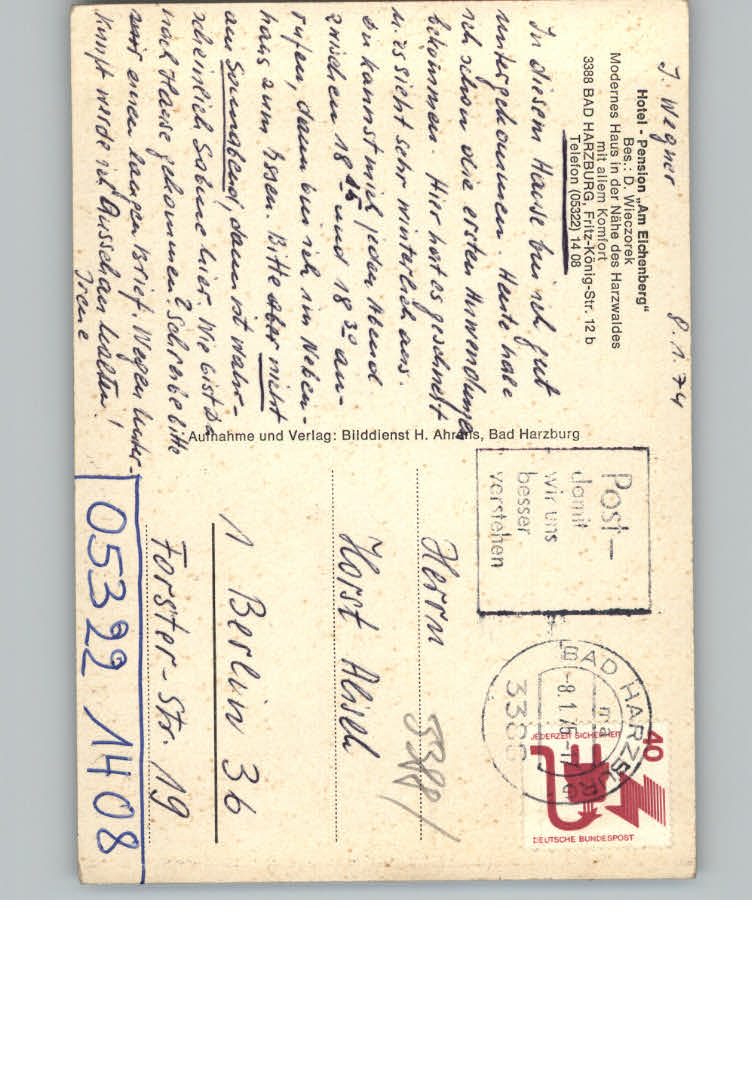 J. Wegner
8.1.74
Hotel - Pension „Am Eichenberg"
Bes.: D. Wieczorek
Modernes Haus in der Nähe des Harzwaldes
mit allem Komfort
3388 BAD HARZBURG, Fritz-König-Str. 12 b
Telefon (05322) 14 08
In diesem Hause bin ich gut
untergekommen. Heute habe
ich schon die ersten Anwendungen
bekommen. Hier hat es geschneit
u. es sieht sehr winterlich aus.
Du kannst mich jeden Abend
zwischen 18 15 und 18 30 an-
rufen, dann bin ich im Neben-
haus zum Essen. Bitte aber nicht
am Sonnabend, dann ist wahr-
scheinlich Sabine hier. Wie bist Du
nach Hause gekommen? Schreibe bitte
mir einen langen Brief. Wegen Unter-
kunft werde ich Ausschau halten!
Irene
Aufnahme und Verlag: Bilddienst H. Ahrens, Bad Harzburg
Post-
damit
wir uns
besser
verstehen
BAD HARZBURG
-8.1.75-17
ma
3388
40
JEDERZEIT SICHERHEIT
DEUTSCHE BUNDESPOST
Herrn
Horst Alisch
5388/
1 Berlin 36
Forster-Str. 19
05322 1408